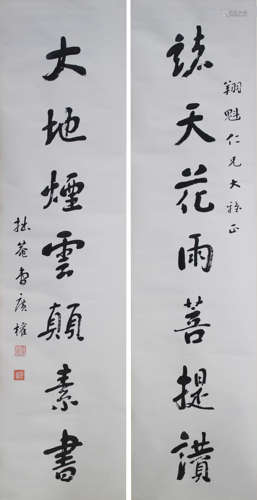 諸天花雨菩提讚
翔魁仁兄大孫正
大地煙雲顛素書
拙菴李廣權